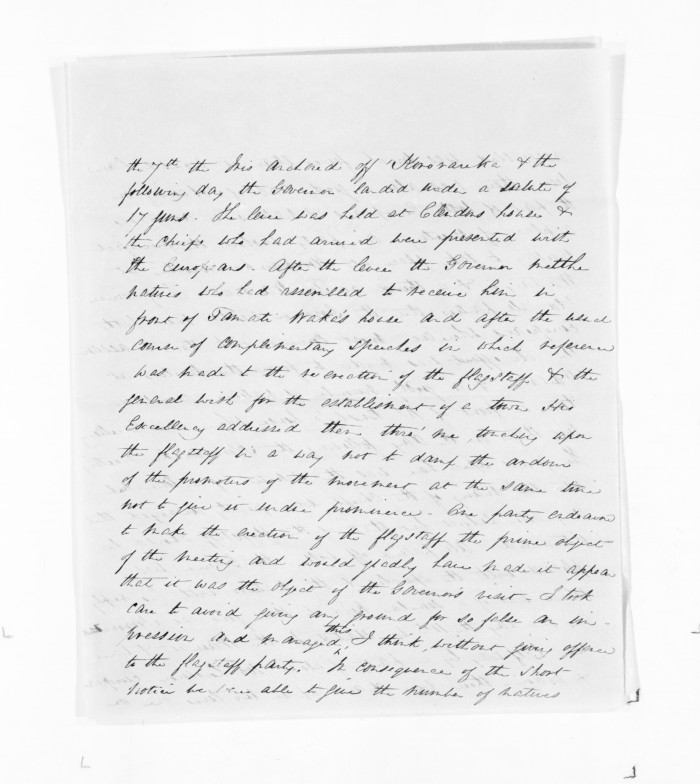 the 7th the Iris anchored off Kororareka & the
following day the Governor landed under a salute of
17 guns. The levee was held at Clendons house &
the chiefs who had arrived were presented with
the Europeans. After the levee the Governor met the
natives who had assembled to receive him in
front of Tamati Waka's house and after the usual
course of complimentary speeches in which reference
was made to the re erection of the flagstaff & the
general wish for the establishment of a town His
Excellency addressed them thro' me, touching upon
the flagstaff in a way not to damp the ardour
of the promoters of the movement at the same time
not to give it undue prominence. One party endeavor
to make the erection of the flagstaff the prime object
of the meeting and would gladly have made it appear
that it was the object of the Governor's visit. I took
care to avoid giving any ground for so false an im-
pression and managed this, I think, without giving offence
to the flagstaff party. In consequence of the short
notice we were able to give the number of natives